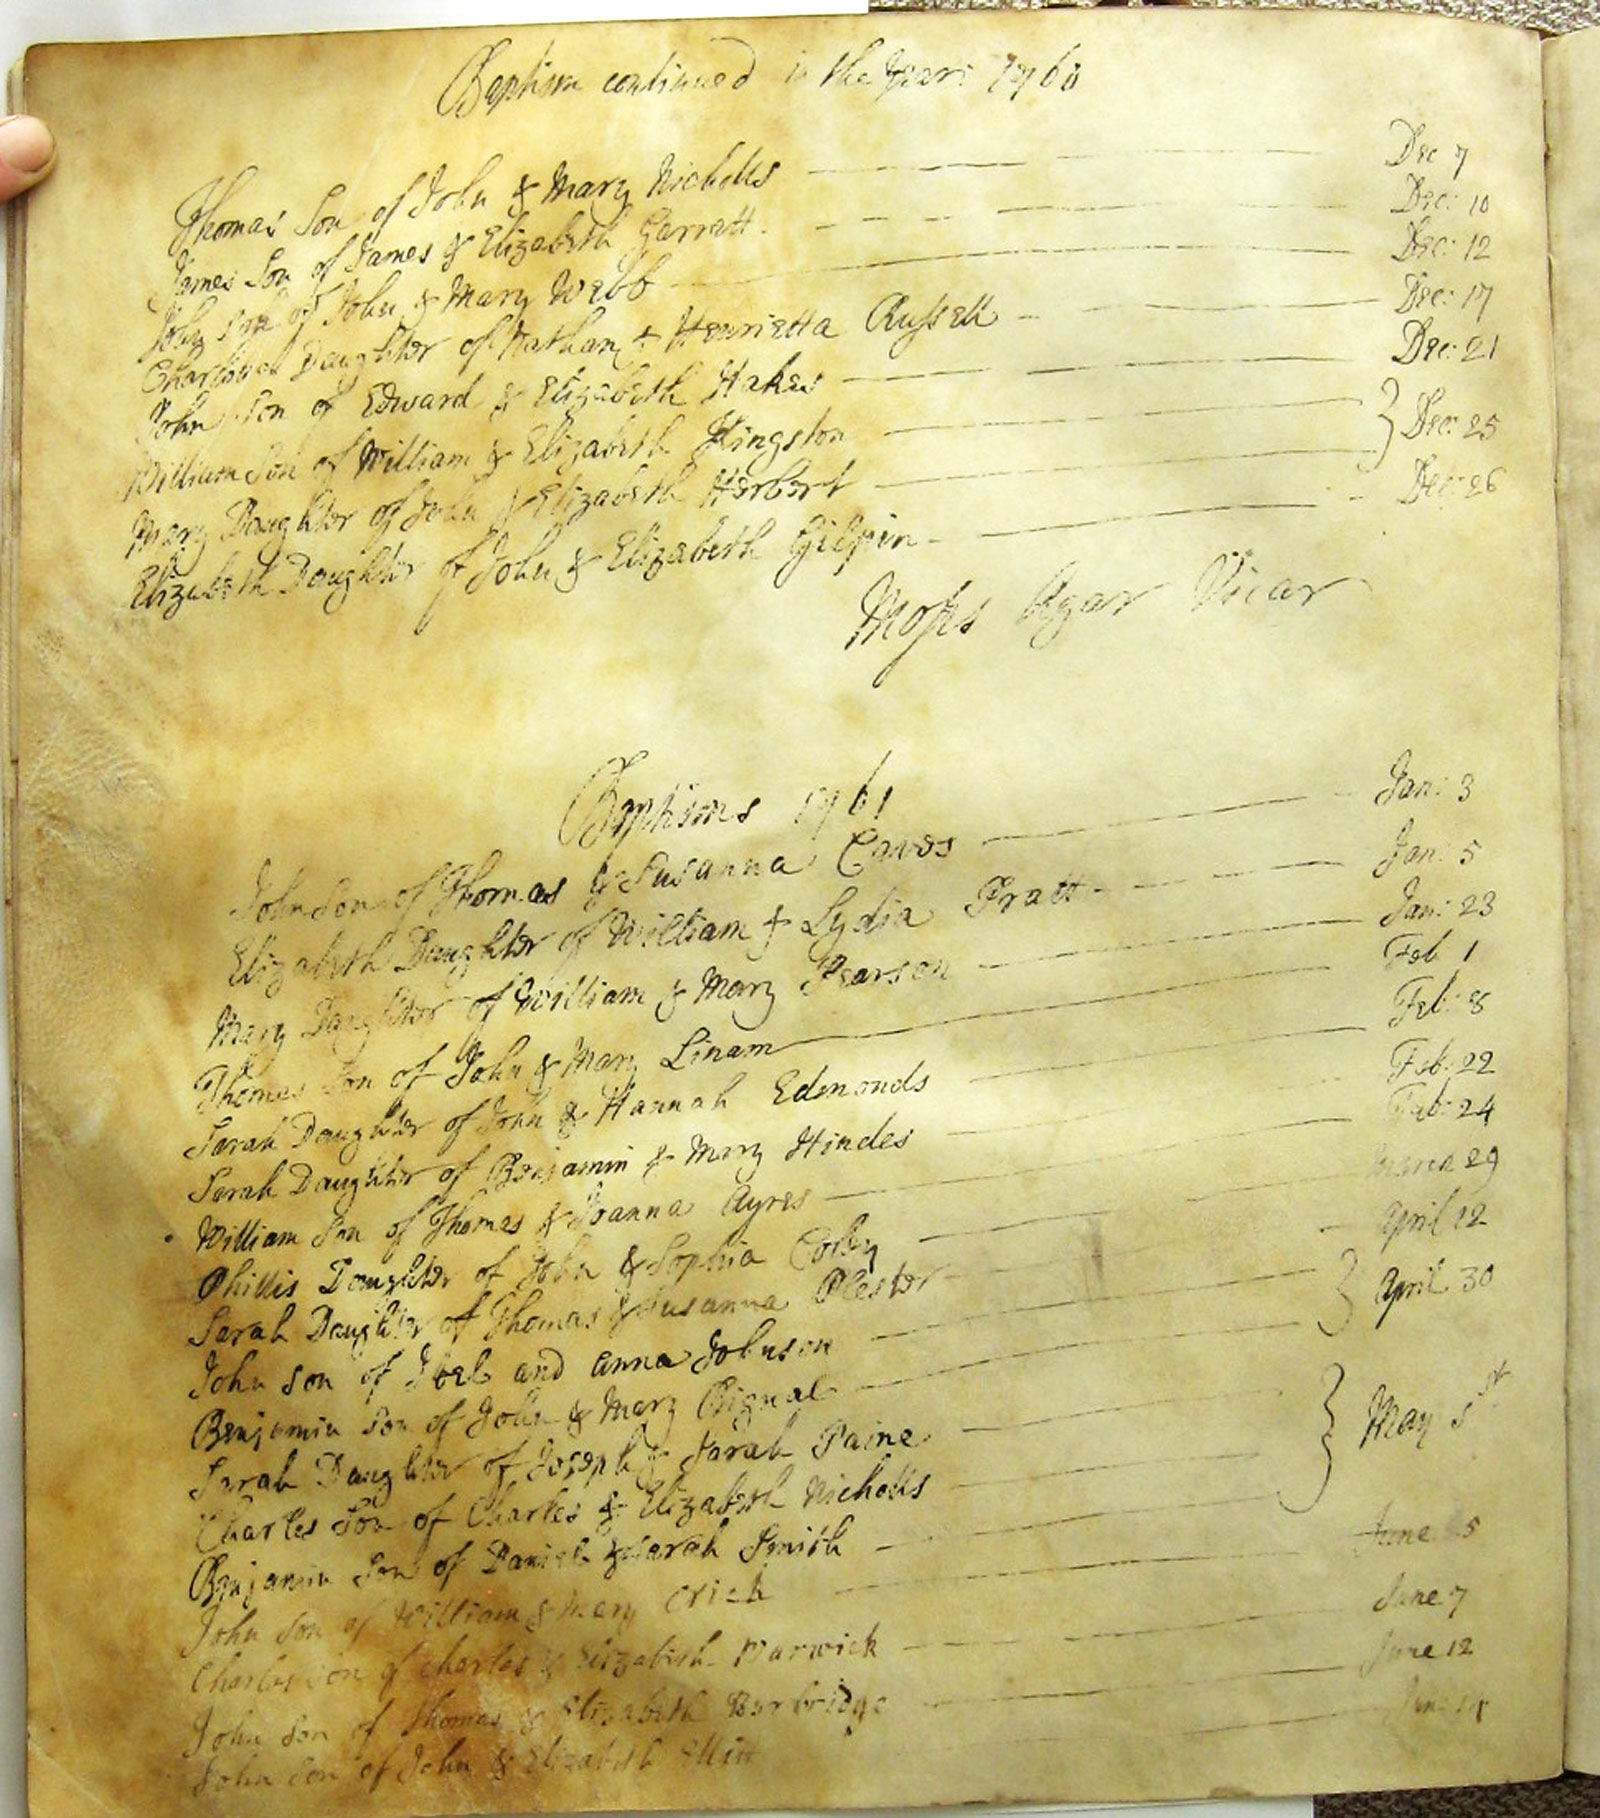 Baptism continued in the Year: 1760
Thomas Son of John & Mary Nicholls Dec 7
James Son of James & Elizabeth Garratt. Dec: 10
John Son of John & Mary Webb Dec: 12
Daughter of Nathan & Henrietta Russell Dec: 17
John Son of Edward & Elizabeth Hakes Dec: 21
William Son of William & Elizabeth Kingston
Mary Daughter of John & Elizabeth Herbert } Dec: 25
Elizabeth Daughter of John & Elizabeth Gilpin Dec: 26
Moses Agar Vicar
Baptisms 1761
John Son of Thomas & Susanna Caves Jan: 3
Elizabeth Daughter of William & Lydia Pratt Jan: 5
Mary Daughter of William & Mary Pearson Jan: 23
Thomas Son of John & Mary Linam Feb 1
Sarah Daughter of John & Hannah Edmonds Feb: 8
Sarah Daughter of Benjamin & Mary Hindes Feb: 22
William Son of Thomas & Joanna Ayres Feb: 24
Phillis Daughter of John & Sophia Corby March 29
Sarah Daughter of Thomas & Susanna Plester April 12
John Son of Joel and Anna Johnson
Benjamin Son of John & Mary Bignal } April 30
Sarah Daughter of Joseph & Sarah Paine
Charles Son of Charles & Elizabeth Nicholls
Benjamin Son of Daniel & Sarah Smith } May
John Son of William & Mary Crick June 5
Charles Son of Charles & Elizabeth Warwick June 7
John Son of Thomas & Elizabeth Burbridge June 12
John Son of John & Elizabeth June